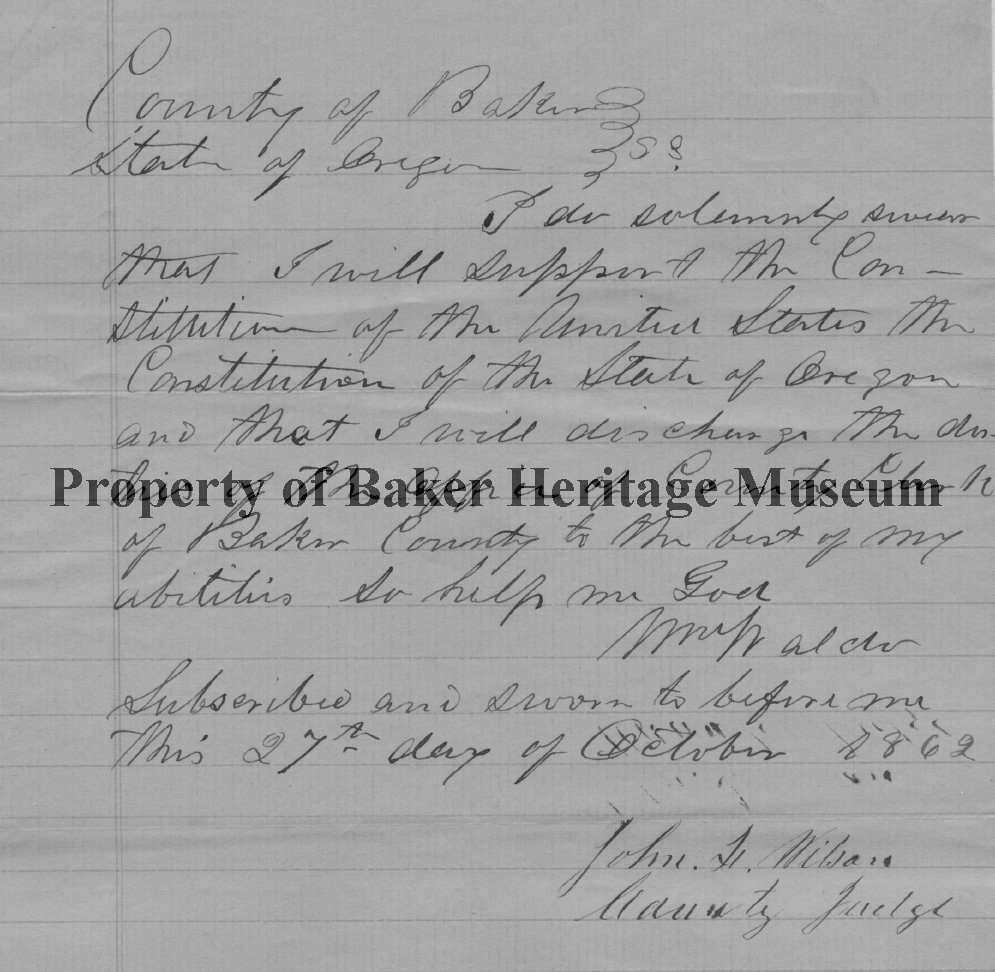 County of Baker
State of Oregon } ss
I do solemnly swear
that I will support the Con-
stitution of the United States the
Constitution of the State of Oregon
and that I will discharge the du-
ties of the office of County Clerk
Property of Baker Heritage Museum
of Baker County to the best of my
abilities So help me God
Wm Waldo
Subscribed and sworn to before me
this 27th day of October 1862
John Wilson
County Judge